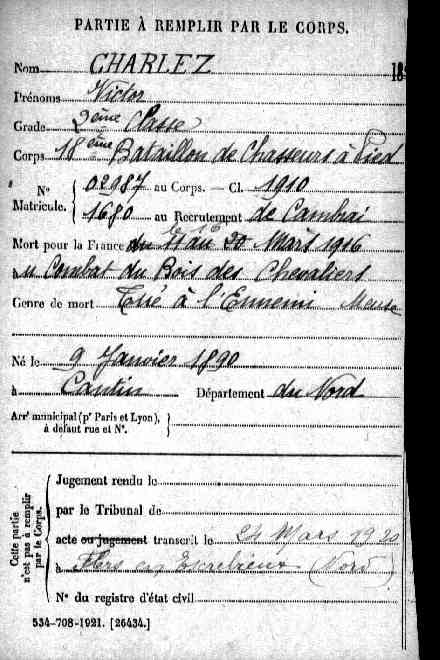 PARTIE À REMPLIR PAR LE CORPS.
Nom CHARLEZ
Prénoms Victor
Grade 2ème Classe
Corps 18ème Bataillon de Chasseurs à Pied
Nº Matricule. 02987 au Corps. — Cl. 1910
1680 au Recrutement de Cambrai
le 16
Mort pour la France du 11 au 20 Mars 1916
au Combat du Bois des Chevaliers
Genre de mort Tué à l'Ennemi Meuse
Né le 9 Janvier 1890
à Cantin Département du Nord
Arrt municipal (pr Paris et Lyon),
à défaut rue et Nº.
Cette partie n'est pas à remplir par le Corps.
Jugement rendu le
par le Tribunal de
acte ou jugement transcrit le 24 Mars 1920
à Flers en Escrebieux (Nord)
Nº du registre d'état civil
534-708-1921. [26434.]